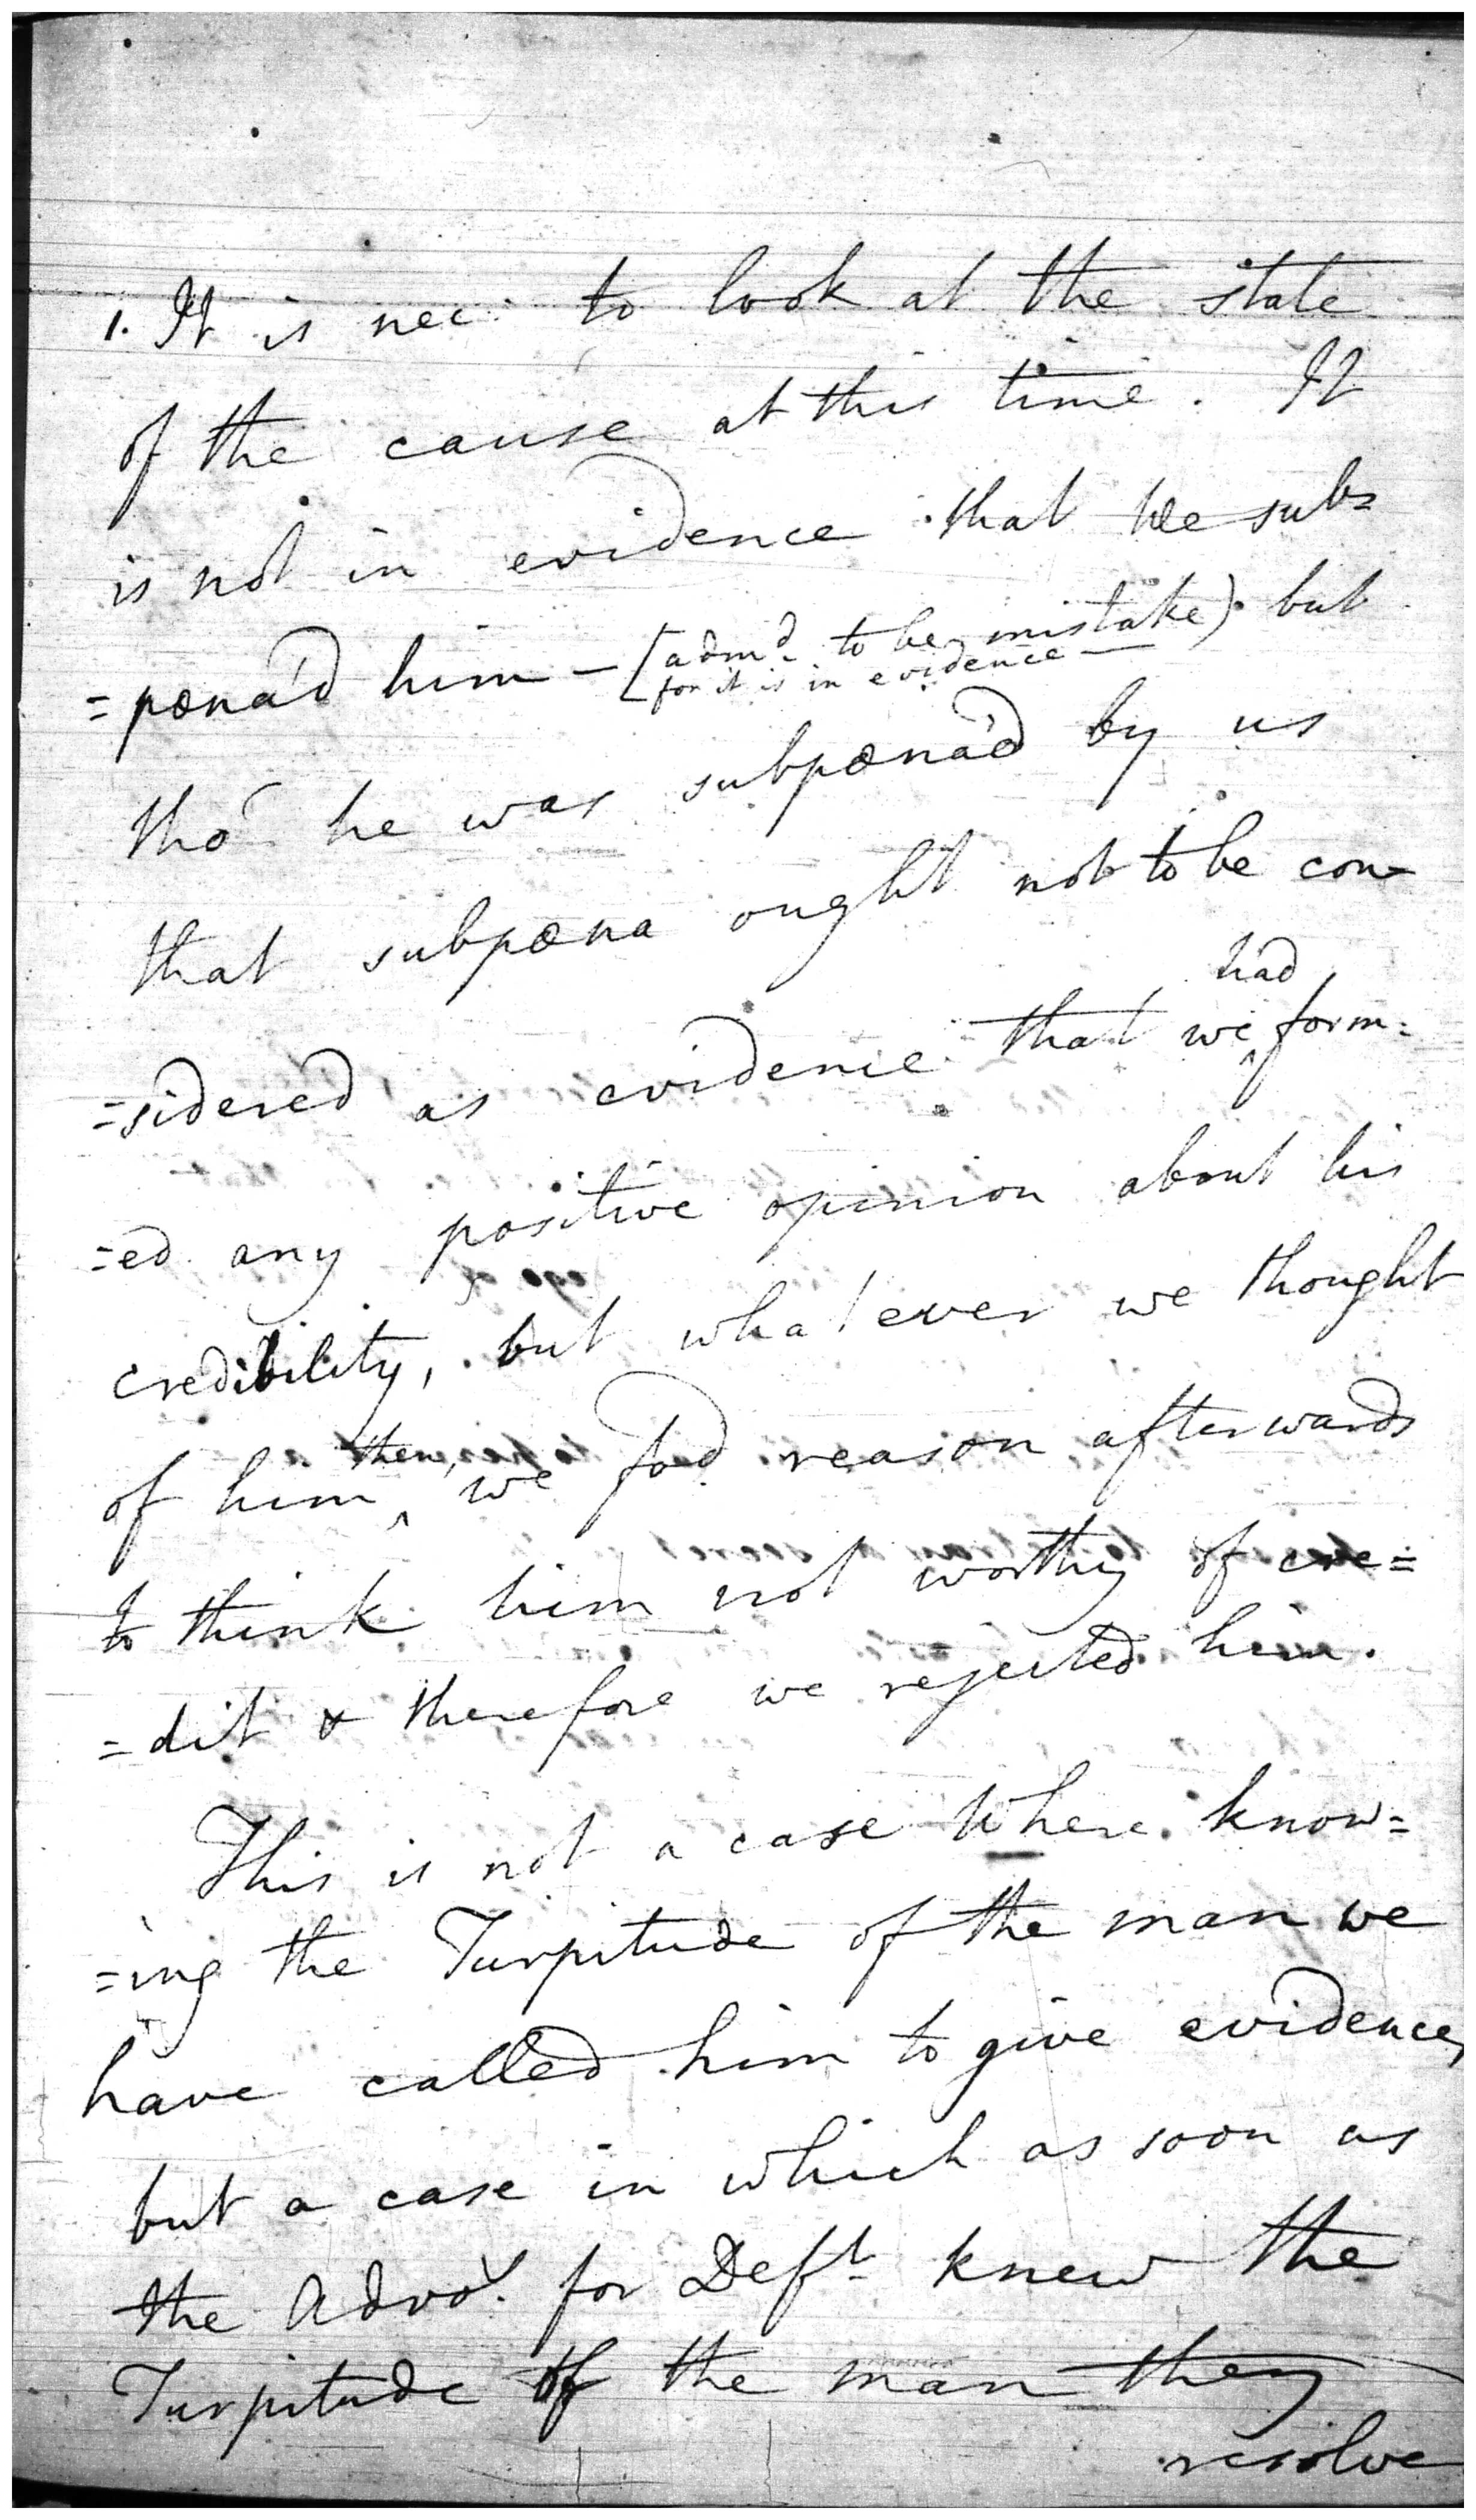 1. It is nec: to look at the state
of the cause at this time. It
is not in evidence that we sub=
=pœna'd him — [adm.d to be mistake) but
for it is in evidence —
tho' he was subpœna'd by us
that subpœna ought not to be con=
had
=sidered as evidence that we ^ form=
=ed any positive opinion about his
credibility, but whatever we thought
then,
of him ^ we fo.d reason afterwards
to think him not worthy of cre=
=dit & therefore we rejected him.
This is not a case where know=
=ing the Turpitude of the man we
have called him to give evidence,
but a case in which as soon as
the Advo.t for Def.t knew the
Turpitude of the man they
resolve